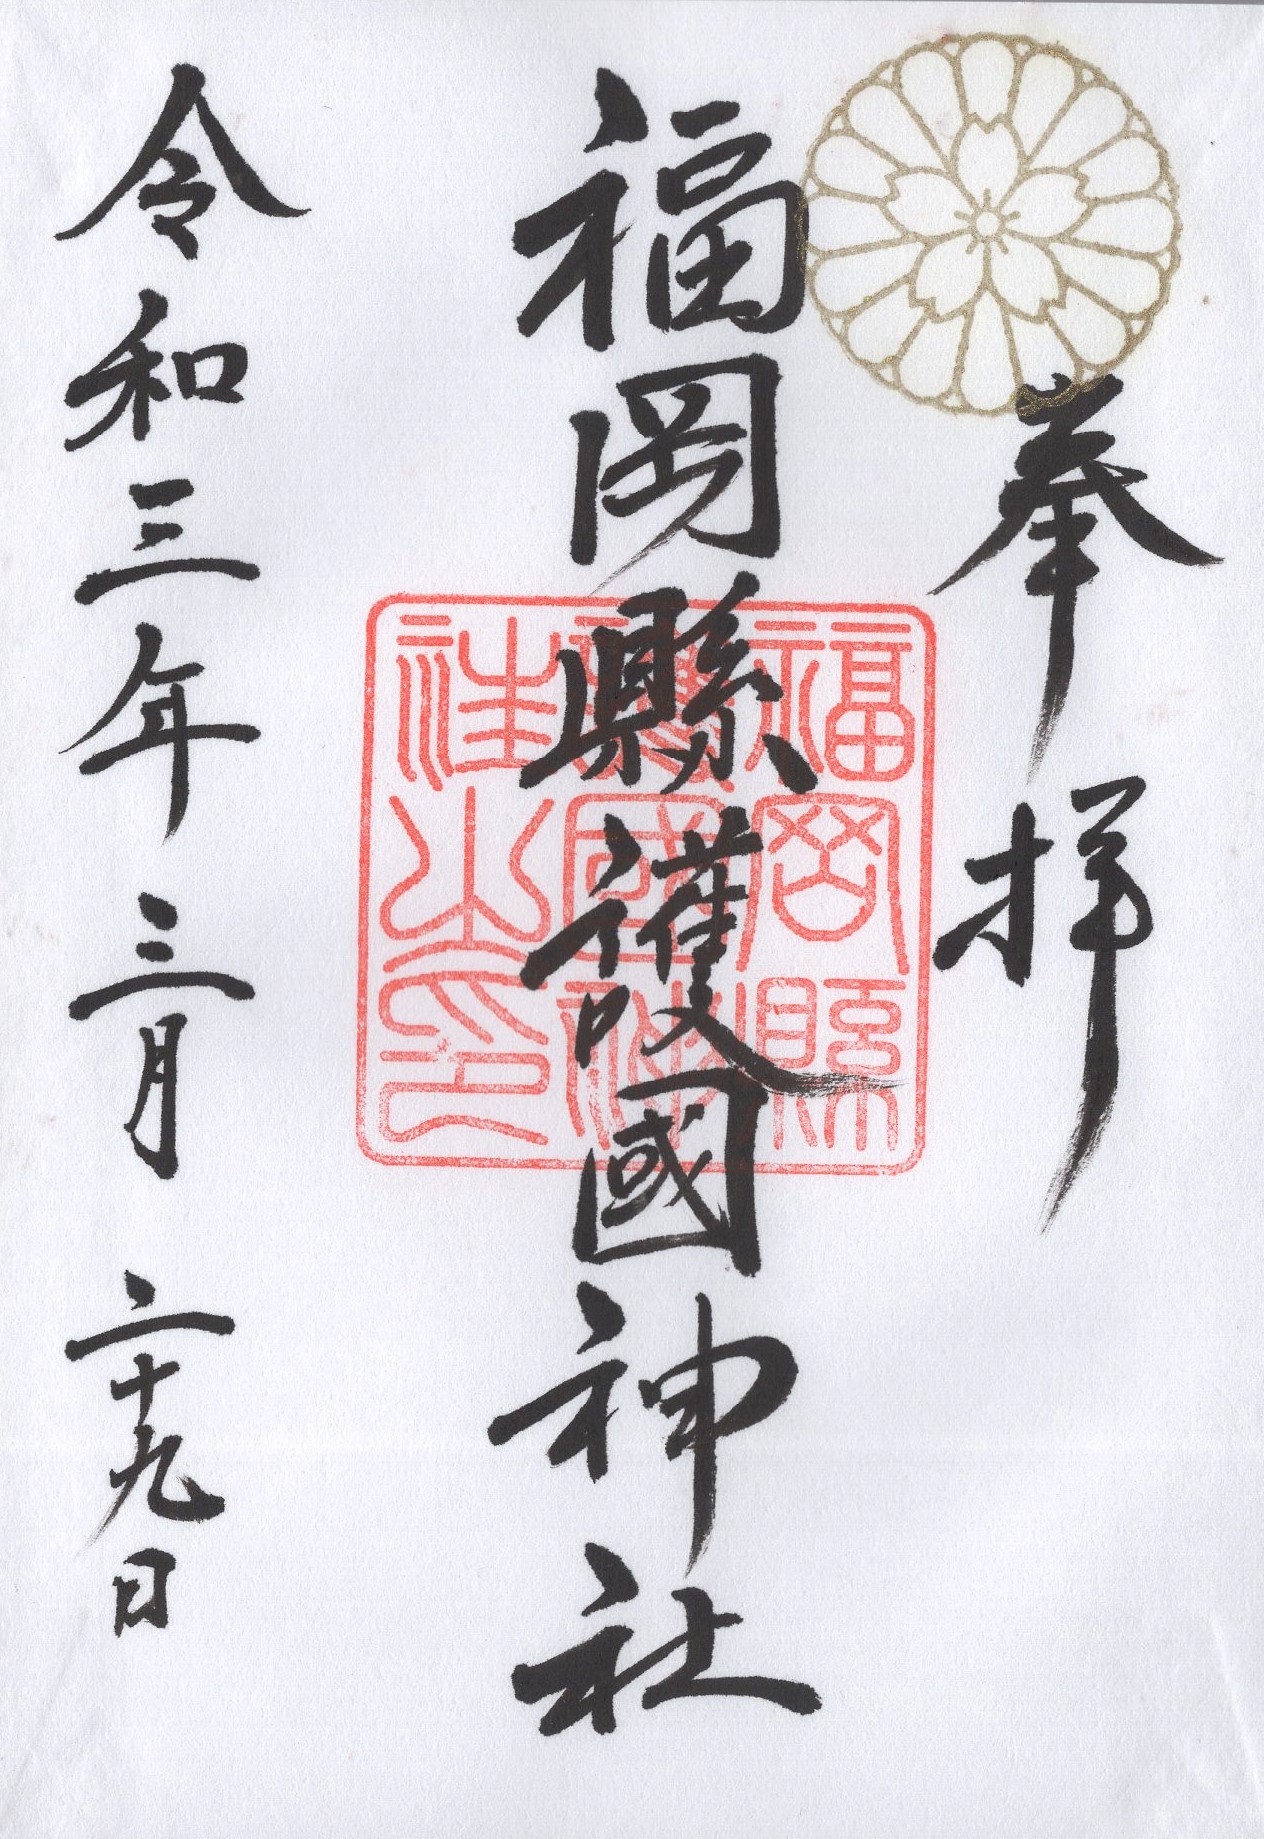 奉拝
福岡縣護國神社
福岡縣護國神社之印
令和三年三月二十九日